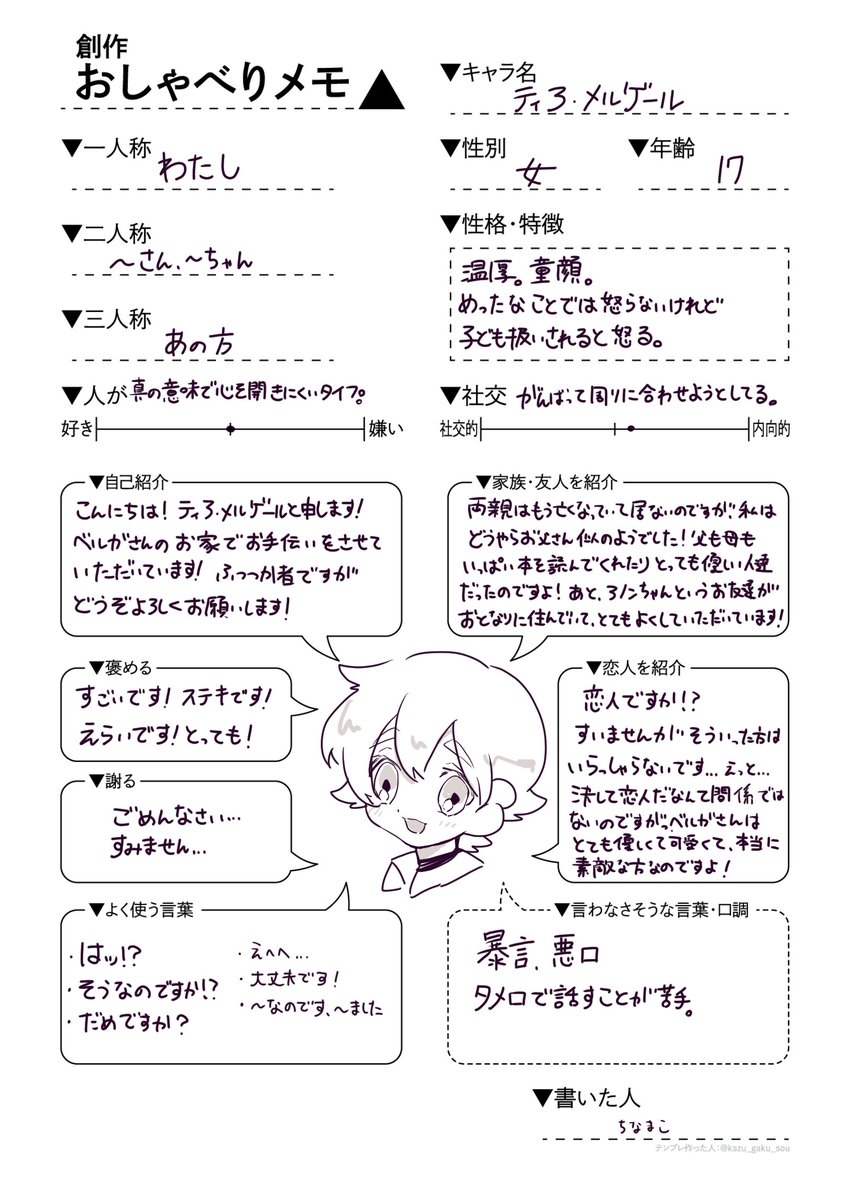 創作
おしゃべりメモ▲
▼キャラ名
ティろ・メルゲール
▼一人称
わたし
▼性別
女
▼年齢
17
▼二人称
〜さん、〜ちゃん
▼三人称
あの方
▼性格・特徴
温厚。童顔。
めったなことでは怒らないけれど
子ども扱いされると怒る。
▼人が 真の意味で心を開きにくいタイプ。
好き 嫌い
▼社交 がんばって周りに合わせようとしてる。
社交的 内向的
▼自己紹介
こんにちは!ティろ・メルゲールと申します!
ベルガさんのお家でお手伝いをさせて
いただいています!ふつつか者ですが
どうぞよろしくお願いします!
▼家族・友人を紹介
両親はもう亡くなっていて居ないのですが、私は
どうやらお父さん似のようでした!父も母も
いっぱい本を読んでくれたりとっても優しい人達
だったのですよ!あと、ろノンちゃんというお友達が
おとなりに住んでいて、とてもよくしていただいています!
▼褒める
すごいです!ステキです!
えらいです!とっても!
▼恋人を紹介
恋人ですか!?
すいませんがそういった方は
いらっしゃらないです...えっと...
決して恋人だなんて関係では
ないのですがっ、ベルガさんは
とても優しくて可愛くて、本当に
素敵な方なのですよ!
▼謝る
ごめんなさい...
すみません...
▼よく使う言葉
・はッ!?
・そうなのですか!?
・だめですか?
・えへへ...
・大丈夫です!
・〜なのです、〜ました
▼言わなさそうな言葉・口調
暴言、悪口
タメ口で話すことが苦手。
▼書いた人
ちなまこ
テンプレ作った人:@kazu_gaku_sou